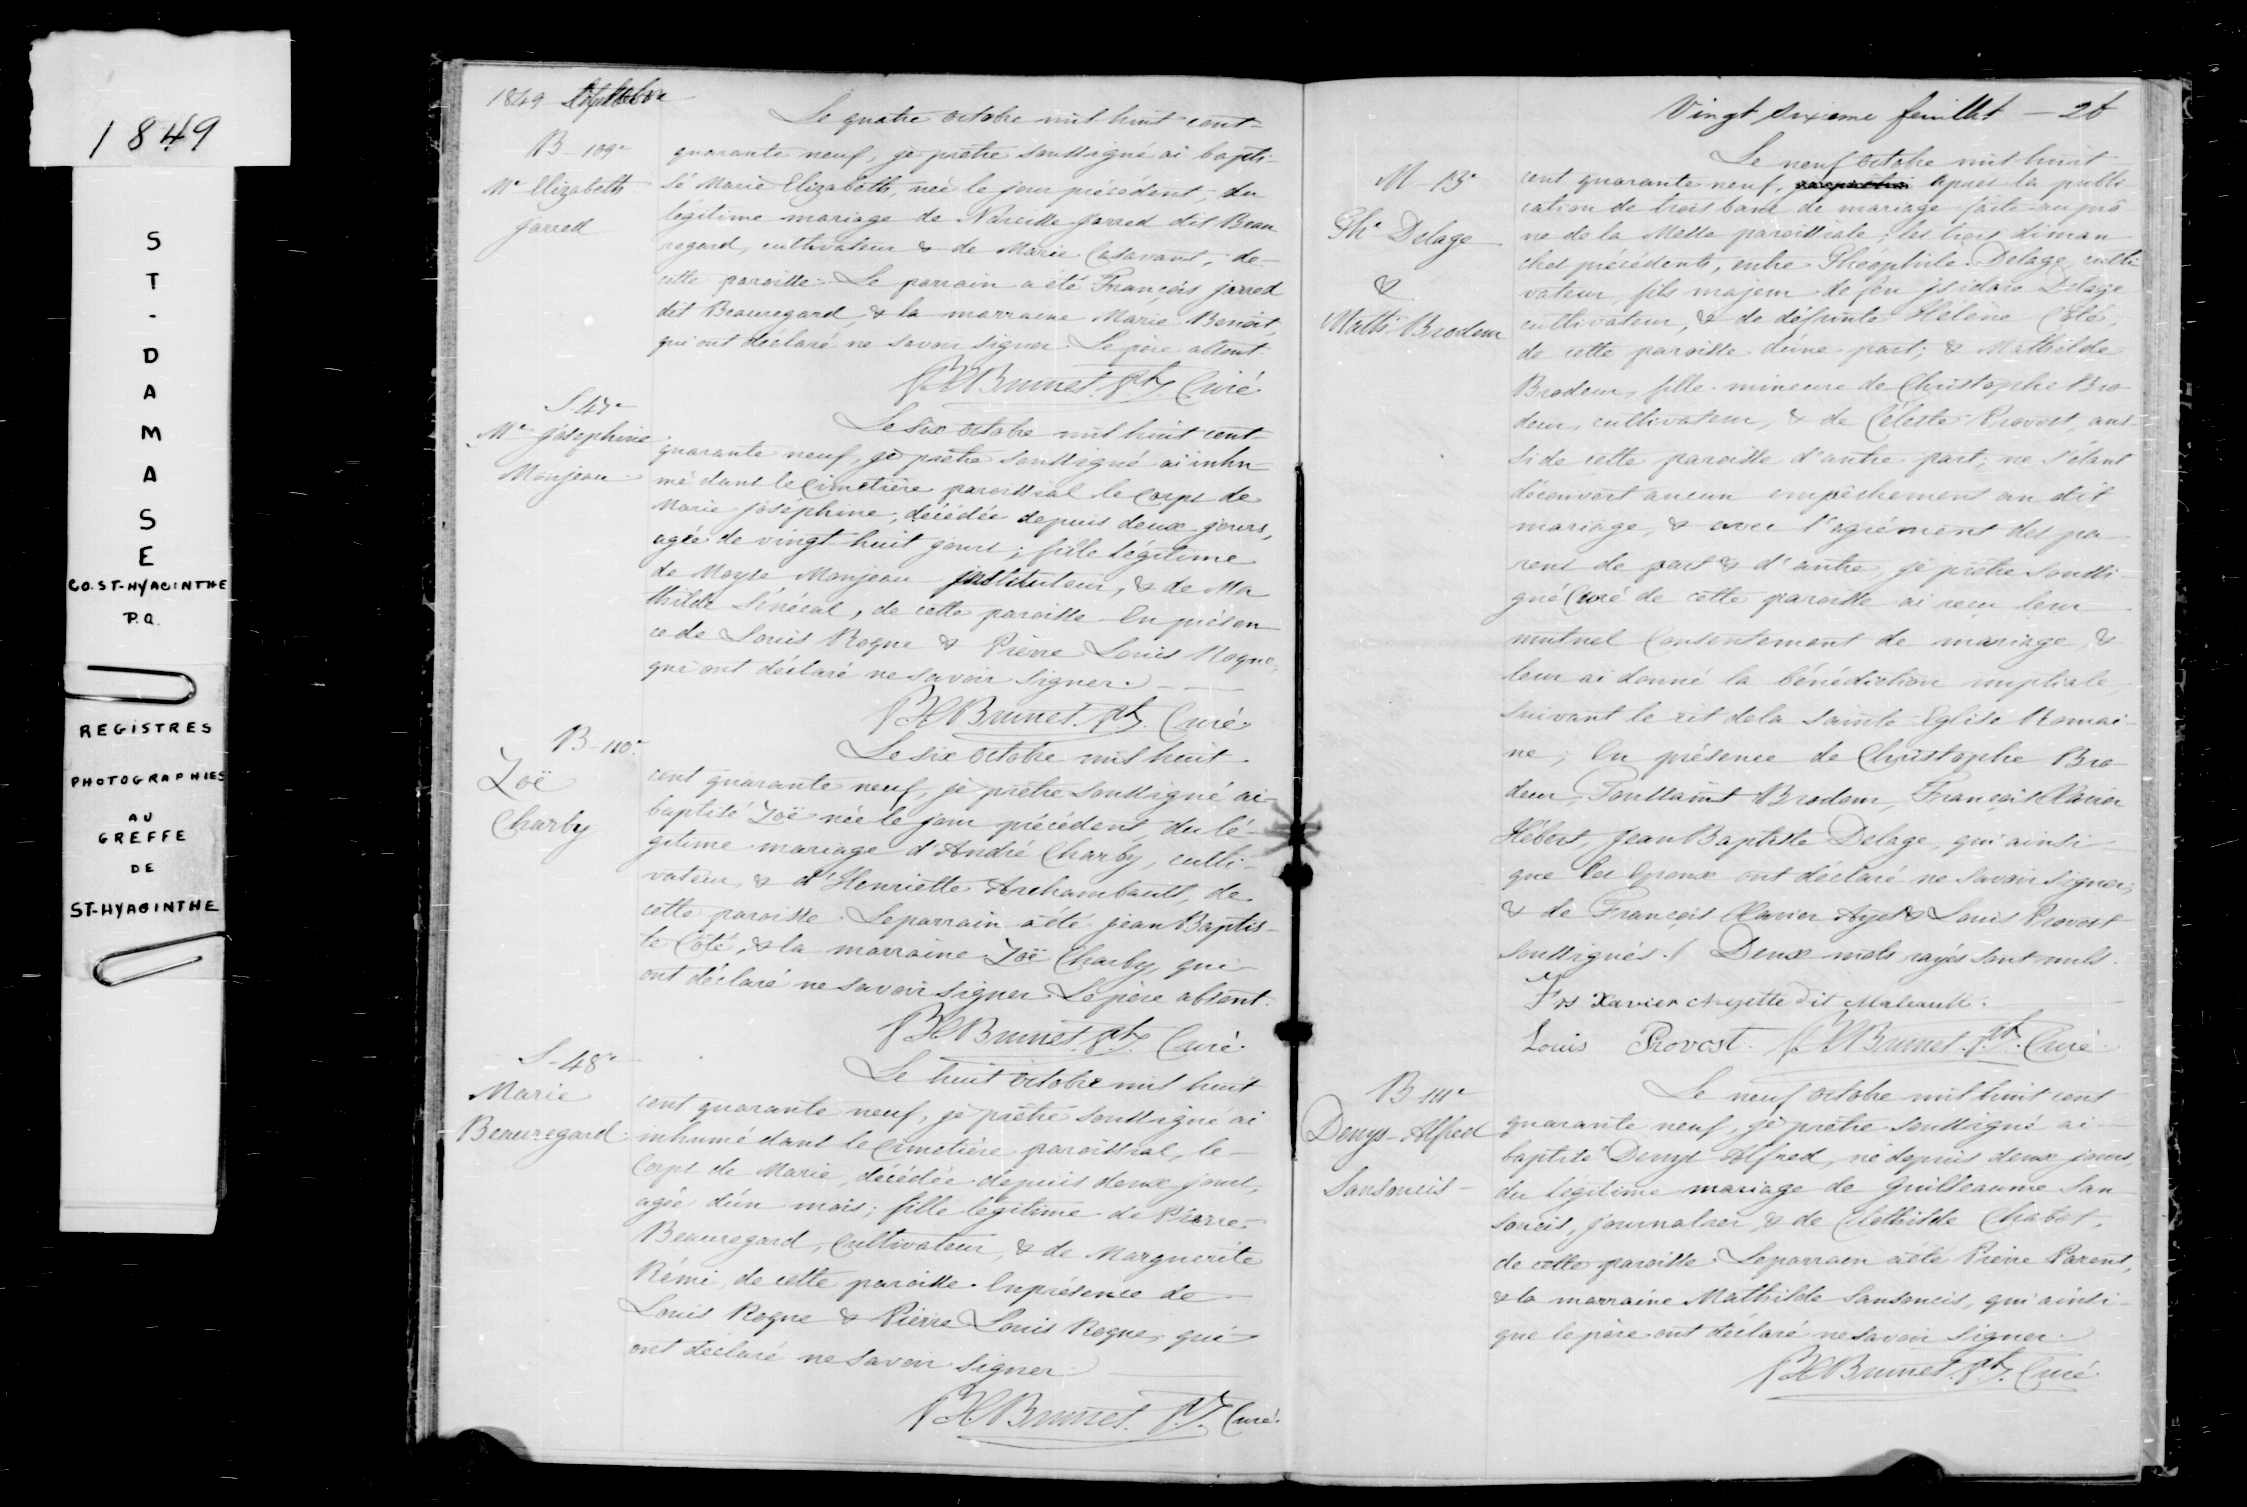 1849
ST-DAMASE
CO. ST-HYACINTHE
P.Q.
REGISTRES
PHOTOGRAPHIES
AU
GREFFE
DE
ST-HYACINTHE
1849
B-109e
Me Elizabeth
Jarred
Le quatre octobre mil huit cent
quarante neuf, je prêtre soussigné ai bapti-
sé Marie Elizabeth, née le jour précédent, du
légitime mariage de Narcisse Jarred dit Beau
regard, cultivateur & de Marie Casavant, de
cette paroisse. Le parrain a été François jarred
dit Beauregard, & la marraine Marie Benoit,
qui ont déclaré ne savoir signer. Le père absent.
Brunet. ptre. Curé
S-47e
Me Josephine
Monjeau
Le six octobre mil huit cent
quarante neuf, je prêtre soussigné ai inhu-
mé dans le Cimetière paroissial le corps de
Marie Joséphine, décédée depuis deux jours,
agée de vingt-huit jours ; fille légitime
de Moyse Monjeau instituteur, & de Ma
thilde Sénécal, de cette paroisse. En présen
ce de Louis Rogne & Pierre Louis Rogne,
qui ont déclaré ne savoir signer.
Brunet. ptre. Curé
B-110e
Zoë
Charby
Le six octobre mil huit
cent quarante neuf, je prêtre soussigné ai
baptisé Zoë née le jour précédent, du lé-
gitime mariage d'André Charby, culti-
vateur, & d'Henriette Archambault, de
cette paroisse. Le parrain a été jean Baptis-
te Côté, & la marraine Zoë Charby, qui
ont déclaré ne savoir signer. Le père absent.
Brunet. ptre. Curé.
S-48e
Marie
Beauregard
Le huit octobre mil huit
cent quarante neuf, je prêtre soussigné ai
inhumé dans le Cimetière paroissial, le
Corps de Marie, décédée depuis deux jours,
agée d'un mois ; fille légitime de Pierre
Beauregard, Cultivateur, & de Marguerite
Rémi, de cette paroisse. En présence de
Louis Rogne & Pierre Louis Rogne, qui
ont déclaré ne savoir signer
Brunet. ptre. Curé.
Vingt sixieme feuillet — 26
M-13e
The Delage
&
Mathe Brodeur
Le neuf octobre mil huit
cent quarante neuf, apres la publi
cation de trois bans de mariage faite au prô
ne de la Messe paroissiale, les trois diman
ches précédents, entre Theophile Delage, culti
vateur, fils majeur de feu jsidore Delage
cultivateur, & de défunte Hélène Côté,
de cette paroisse d'une part; & Mathilde
Brodeur, fille mineure de Christophe Bro
deur, cultivateur, & de Céleste Provost, aus
si de cette paroisse d'autre part, ne s'étant
découvert aucun empêchement au dit
mariage, & avec l'agrément des pa
rens de part & d'autre, je prêtre soussi
gné Curé de cette paroisse ai reçu leur
mutuel Consentement de mariage, &
leur ai donné la bénédiction nuptiale,
suivant le rit de la sainte Eglise Romai-
ne; En présence de Christophe Bro
deur, Toussaint Brodeur, François Xavier
Hébert, Jean Baptiste Delage, qui ainsi
que les Epoux ont déclaré ne savoir signer;
& de François Xavier Ayet & Louis Provost
soussignés. / Deux mots rayés sont nuls.
Frs Xavier Ayette dit Maleault.
Louis Provost. Brunet. ptre. Curé.
B-111e
Denys-Alfred
Sansoucis
Le neuf octobre mil huit cent
quarante neuf, je prêtre soussigné ai
baptisé Denys Alfred, né depuis deux jours,
du légitime mariage de Guilleaume San
soucis, journalier & de Clothilde Chabot,
de cette paroisse. Le parrain a été Pierre Parent,
& la marraine Mathilde Sansoucis, qui ainsi
que le père ont déclaré ne savoir signer.
Brunet. ptre. Curé